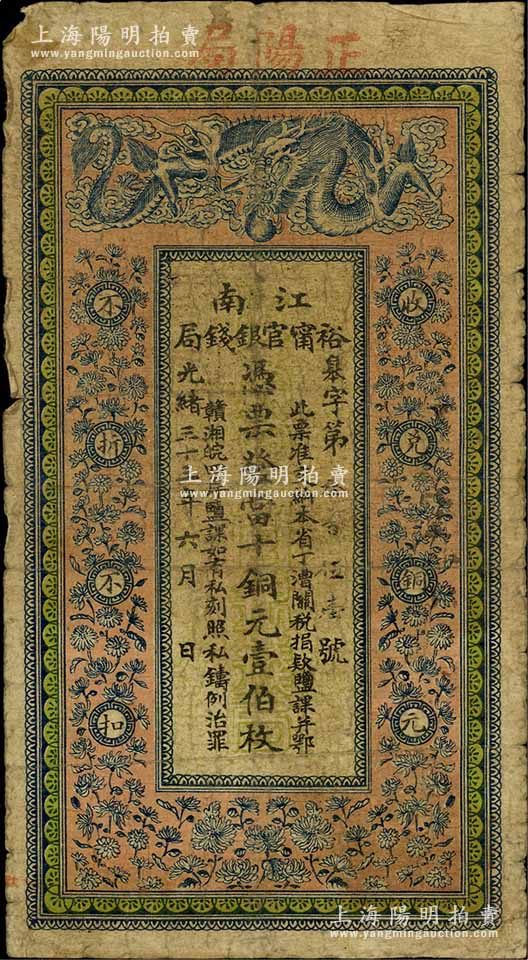 上海陽明拍賣
www.yangmingauction.com
正陽局
江南
裕甯官銀錢局
字第
伍壹號
此票准
本省丁漕關稅捐款鹽課并鄂
憑票發當十銅元壹伯枚
贛湘皖
鹽課如有私刻照私鑄例治罪
光緒三十
年六月
日
收兌銅元
不折不扣
上海陽明拍賣
www.yangmingauction.com
上海陽明拍賣
www.yangmingauction.com